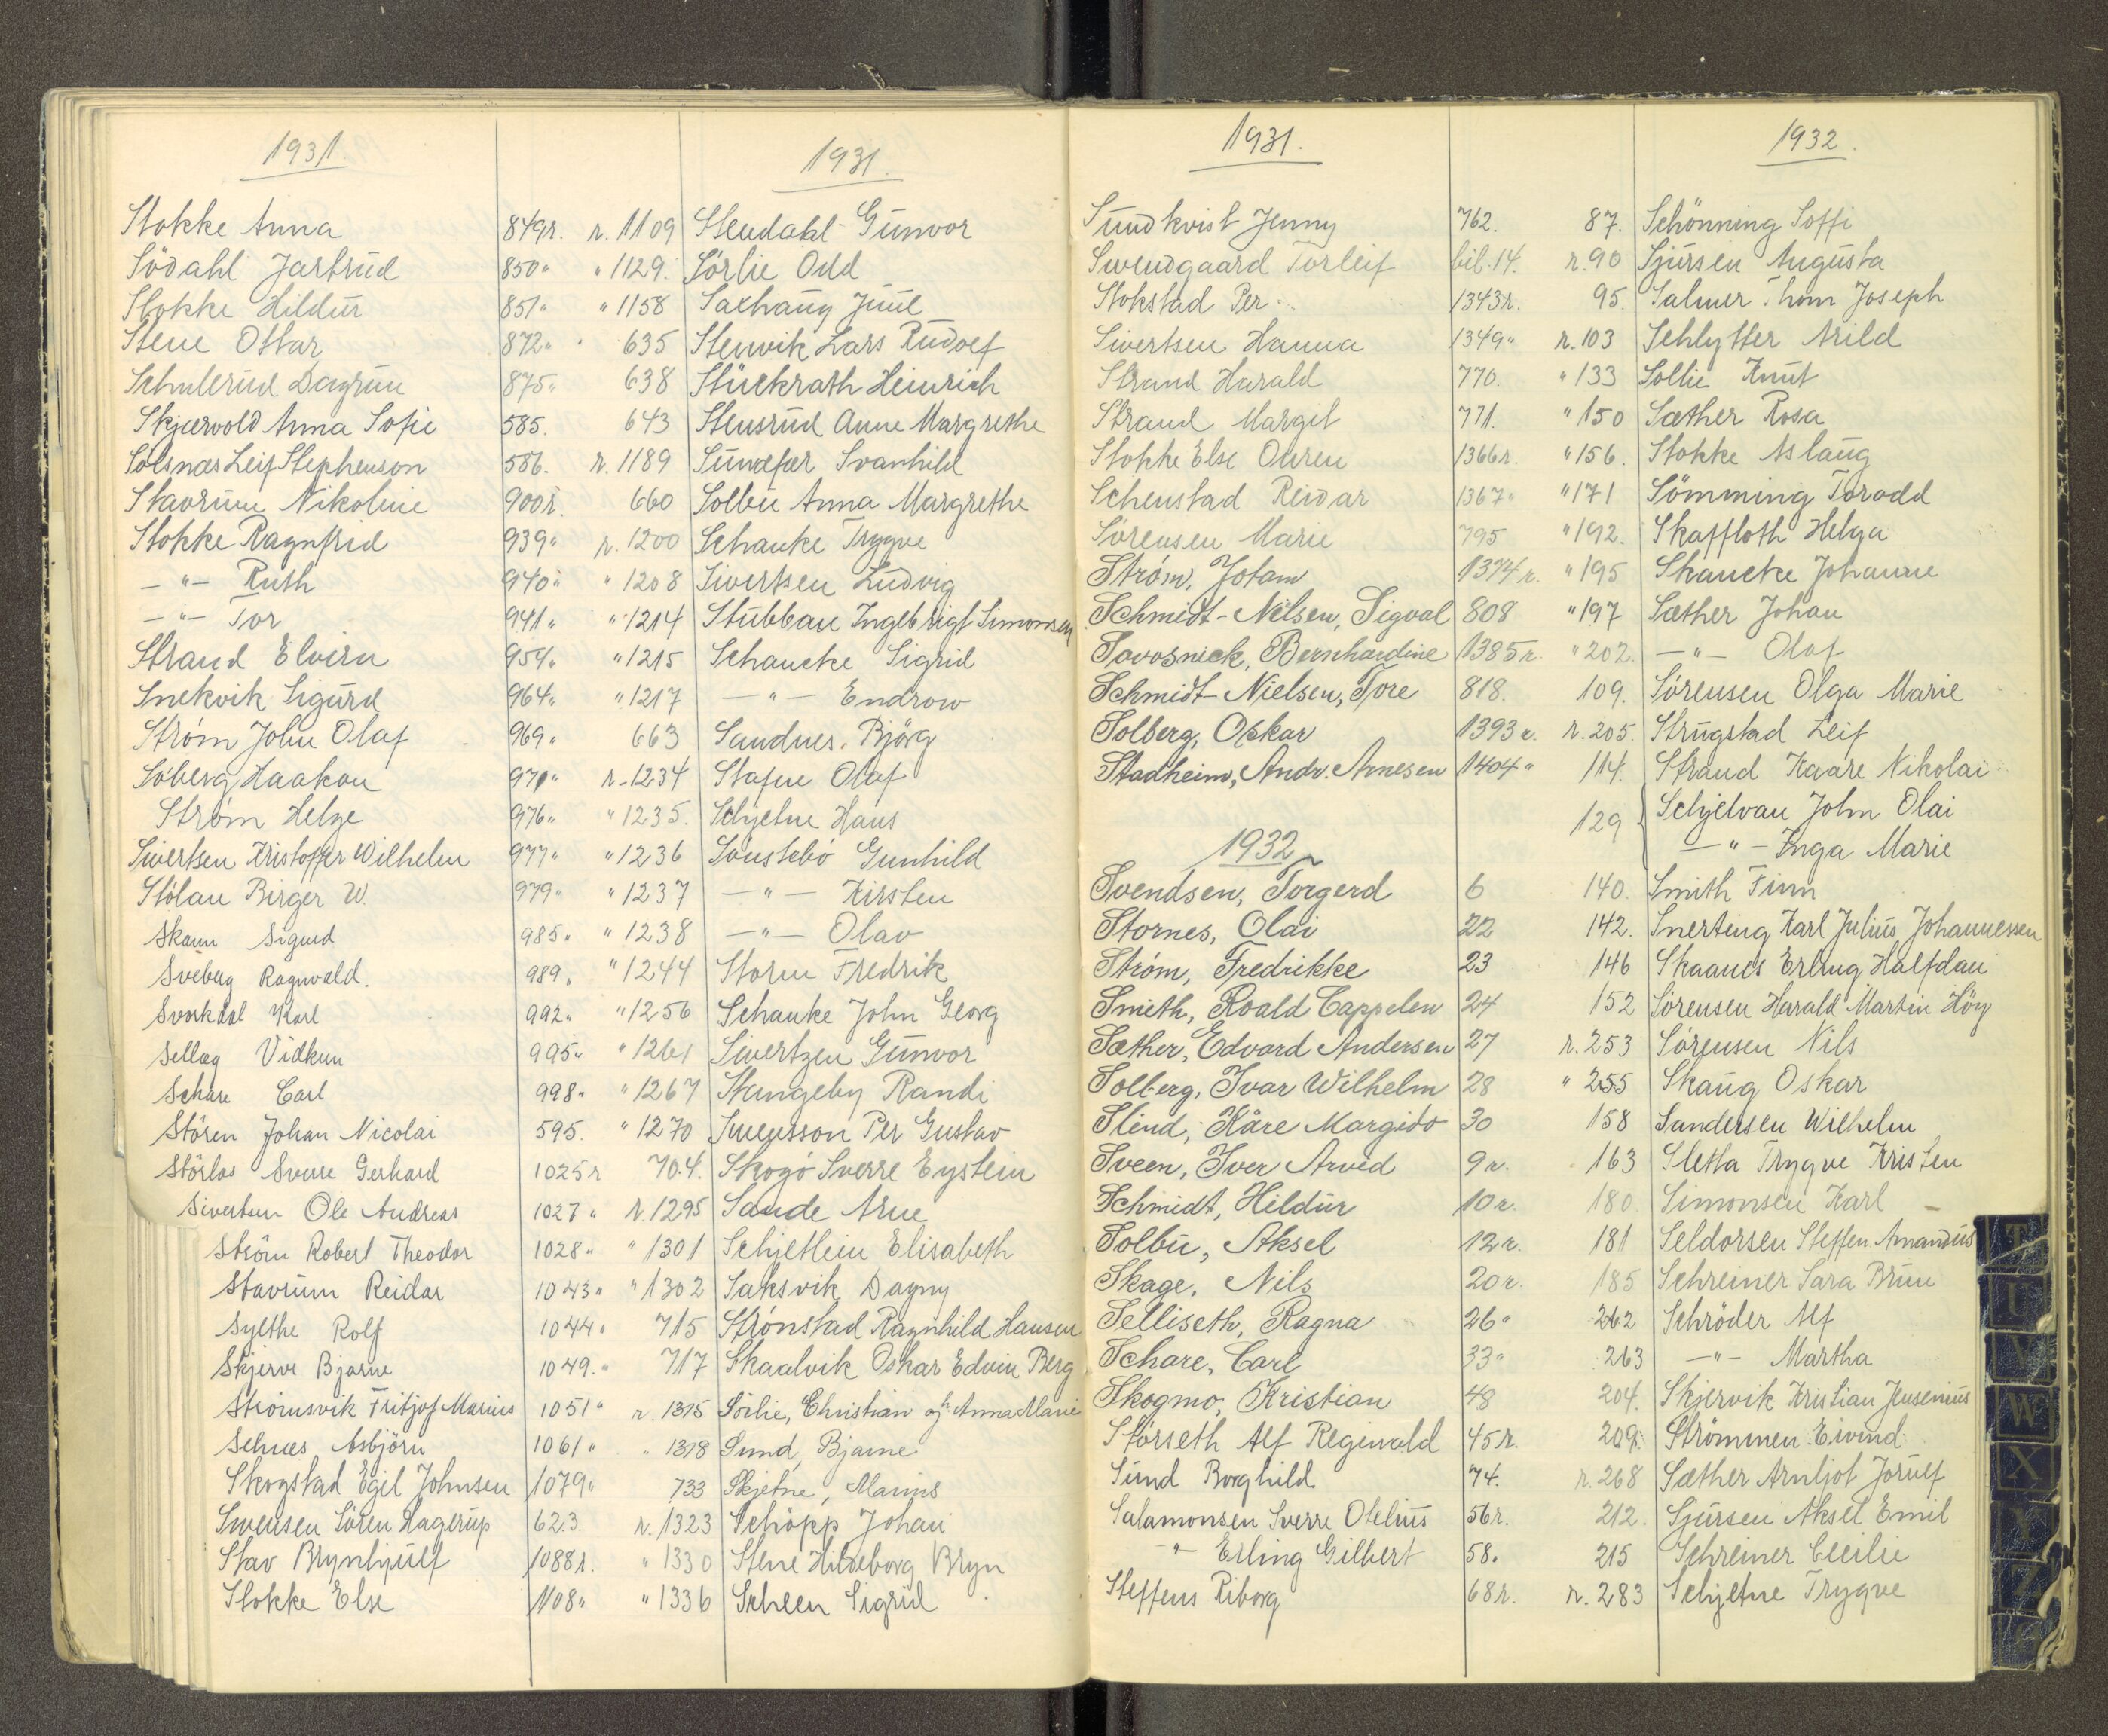 1931.
Stokke Anna 849r.
Södahl Jartrud 850"
Stokke Hildur 851"
Stene Ottar 872"
Schulerud Dagrun 875"
Skjærvold Anna Sofie 585.
Solsnæs Leif Stephenson 586.
Stavrum Nikoline 900r.
Stokke Ragnfrid 939"
—"— Ruth 940"
—"— Tor 941"
Strand Elvira 959"
Snekvik Sigurd 964"
Strøm John Olaf 969"
Söberg Haakon 970"
Strøm Helge 976"
Sivertsen Kristoffer Wilhelm 977"
Stölan Birger W. 979"
Skaun Sigurd 985"
Sveberg Ragnvald. 989"
Svorkdal Karl 992"
Selläg Vidkun 995"
Schare Carl 998"
Stören Johan Nicolai 595.
Störlos Sverre Gerhard 1025r
Sivertsen Ole Andreas 1027"
Ström Robert Theodor 1028"
Stavrum Reidar 1043"
Sylthe Rolf 1044"
Skjerve Bjarne 1049"
Strömsvik Fritjof Marius 1051"
Selnes Asbjörn 1061"
Skogstad Egil Johnsen 1079"
Svensen Sören Hagerup 623
Stav Brynhjulf 1088r.
Stokke Else 1108"
1931.
r. 1109 Stendahl Gunvor
" 1129. Sörlie Odd
" 1158 Saxhaug Juul
635 Stenvik Lars Rudolf
638 Stückrath Heinrich
643 Stensrud Anne Margrethe
r. 1189 Sundfær Svanhild
660 Solbu Anna Margrethe
r. 1200 Schanke Trygve
" 1208 Sivertsen Ludvig
" 1214 Stubban Ingebrigt Simonsen
" 1215 Schancke Sigrid
" 1217 —"— Endrow
663 Sandnes, Björg
r. 1234 Stafne Olaf
" 1235. Schjetne Hans
" 1236 Soustebö Gunhild
" 1237 —"— Kirsten
" 1238 —"— Olav
" 1244 Storm Fredrik
" 1256 Schanke John Georg
" 1261 Sivertzen Gunvor
" 1267 Stangeby Randi
" 1270 Svensson Per Gustav
704. Skogö Sverre Eystein
r. 1295 Sande Arne
" 1301 Schjetlein Elisabeth
" 1302 Saksvik Dagny
715 Strönstad Ragnhild Hansen
717 Skaalvik Oskar Edvin Berg
r. 1315 Sörlie, Christian og Anna Marie
" 1318 Sund, Bjarne
733 Skjetne, Marius
r. 1323 Schöpp Johan
" 1330 Stene Hildeborg Bryn
" 1336 Scheen Sigrid
1931.
Sundkvist Jenny 762.
Svendgaard Torleif bil. 14.
Stokstad Per 1343r.
Sivertsen Hanna 1349"
Strand Harald 770.
Strand Margit 771.
Stokke Else Ouren 1366r.
Schenstad Reidar 1367"
Sörensen Marie 795
Strøm, Jotam 1374r.
Schmidt-Nilsen, Sigval 808
Sovosnick, Bernhardine 1385r.
Schmidt-Nielsen, Tore 818.
Solberg, Oskar 1393r.
Stadheim, Andr. Arnesen 1404"
1932
Svendsen, Torgerd 6
Stornes, Olai 22
Strøm, Fredrikke 23
Smith, Roald Cappelen 24
Sæther, Edvard Andersen 27
Solberg, Ivar Wilhelm 28
Slind, Kåre Margido 30
Sveen, Iver Arvid 9r.
Schmidt, Hildur 10r.
Solbu, Aksel 12r.
Skage, Nils 20r.
Selliseth, Ragna 26"
Schare, Carl 33"
Skogmo, Kristian 48
Störseth Alf Reginald 45r.
Sund Borghild 74.
Salamonsen Sverre Otelius 56r.
—"— Erling Gilbert 58"
Steffens Riborg 68r.
1932.
87. Schönning Soffi
r. 90 Sjursen Augusta
95. Salmer Thom Joseph
r. 103 Schlytter Arild
" 133 Sollie Knut
" 150 Sæther Rosa
" 156. Stokke Aslaug
" 171 Sömming Torodd
" 192. Skaffloth Helga
" 195 Skancke Johanne
" 197 Sæther Johan
" 202. —"— Olaf
109. Sörensen Olga Marie
r. 205. Strugstad Leif
114. Strand Kaare Nikolai
129 { Schjelvan John Olai
—"— Inga Marie
140. Smith Finn
142. Snerting Karl Julius Johannessen
146 Skaanes Erling Halfdan
152 Sörensen Harald Martin Höy
r. 253 Sörensen Nils
" 255 Skaug Oskar
158 Sandersen Wilhelm
163 Sletta Trygve Kristen
180. Simonsen Karl
181 Seldorsen Steffen Amandus
185 Schreiner Sara Brun
262 Schröder Alf
263 —"— Martha
204. Skjervik Kristian Jensenius
209. Strömmen Eivind
r. 268 Sæther Arnljot Jorulf
212. Sjursen Aksel Emil
215 Schreiner Cecilie
r. 283 Schjetne Trygve
T
U
V
W
X
Y
Z